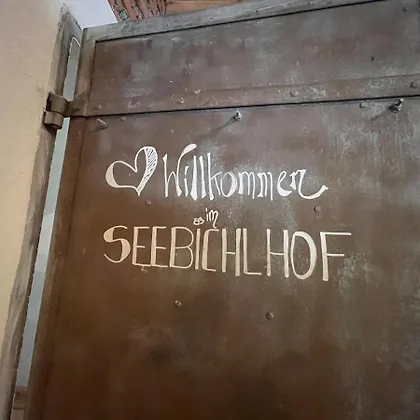 Willkommen
im
SEEBICHLHOF